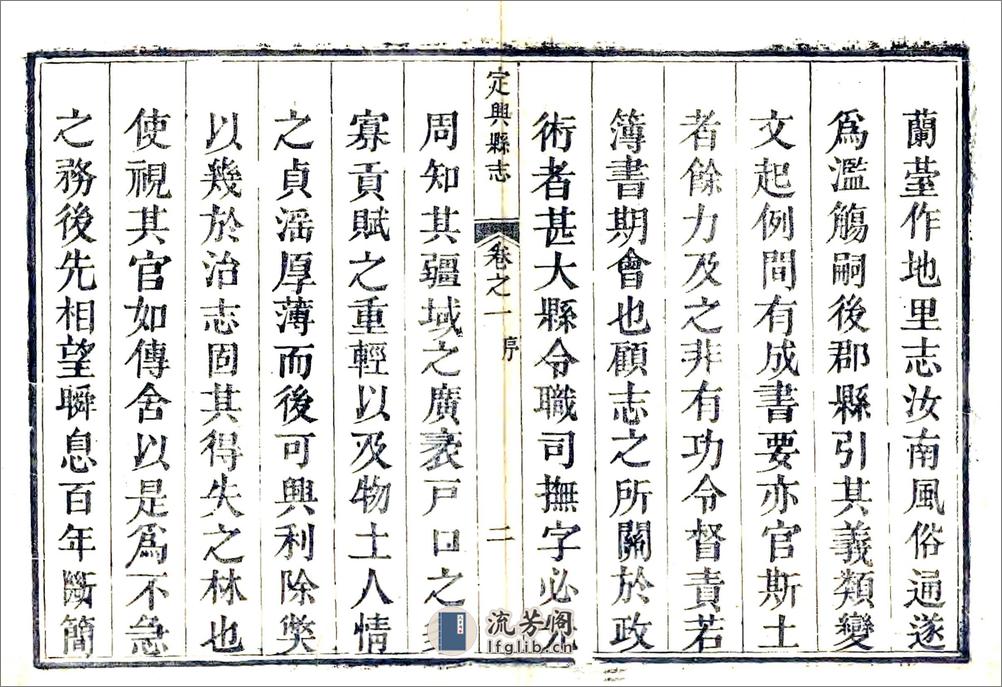 蘭薹作地里志汝南風俗通遂
爲濫觴嗣後郡縣引其義類變
文起例間有成書要亦官斯土
者餘力及之非有功令督責若
簿書期會也顧志之所關於政
術者甚大縣令職司撫字必
定興縣志
卷之一
序
二
周知其疆域之廣袤戸口之
寡貢賦之重輕以及物土人情
之貞滛厚薄而後可興利除獘
以幾於治志固其得失之林也
使視其官如傳舍以是爲不急
之務後先相望瞬息百年斷簡
流芳阁
lfglib.cn